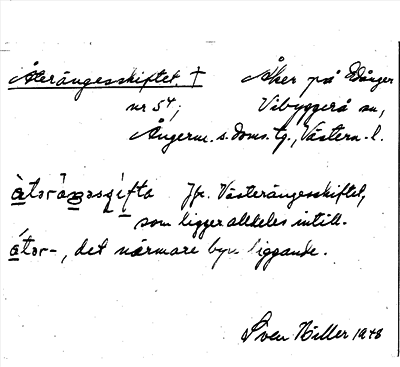 Återängesskiftet. † Åker på Edånger
nr 54; Vibyggerå sn,
Ångerm. s. doms. tg., Västern. l.
àtəräŋəsʃifta Jfr. Västerängesskiftet,
som ligger alldeles intill.
átər-, det närmare byn liggande.
Sven Hiller 1948